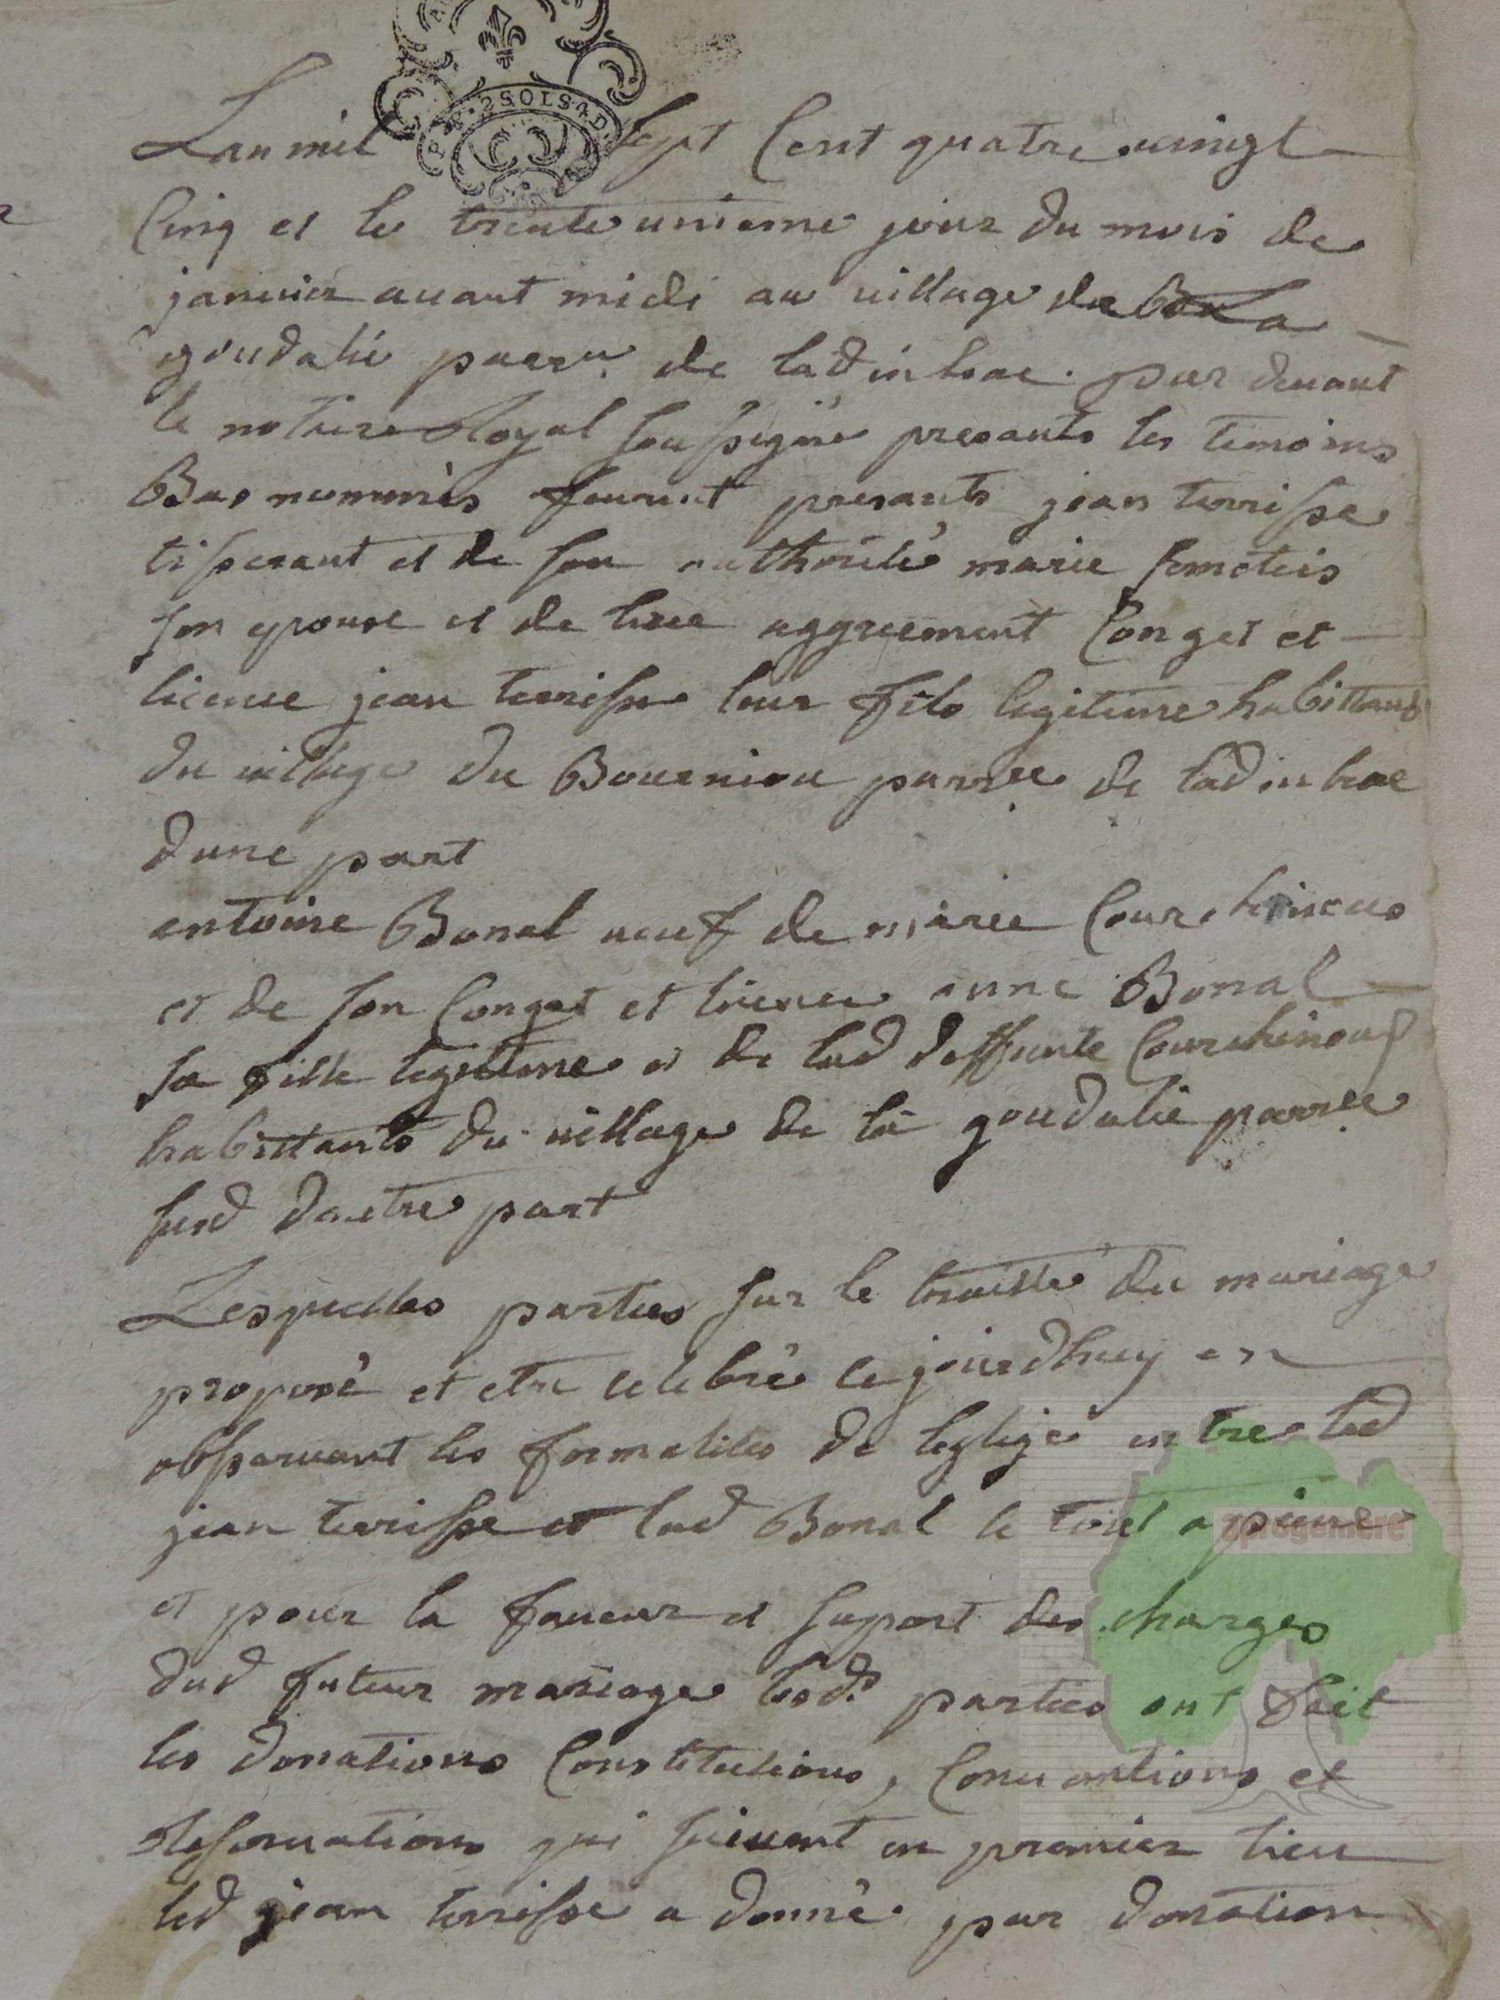 P. 2SOLS4D.
Lan mil sept Cent quatre vingt
Cinq et le trente unieme jour du mois de
janvier avant midi au village de La
goudalie parr.se de ladinhac par devant
le notaire Royal soussigné presants les temoins
Bas nommés furent presants jean terrisse
tisserant et de son authorité marie
son epouse et de leur aggreement Conget et
licence jean terrisse leur fils legitime habittants
du village du Bourniou parr.se de ladinhac
dune part
antoine Bonal veuf de marie Courchinous
et de son Conget et licence anne Bonal
sa fille legittime et de lad deffunte Courchinous
habittants du village de la goudalie parr.se
susd dautre part
Lesquelles parties sur le traitté du mariage
proposé et etre celebré cejourdhuy en
observant les formalites de leglize entre led
jean terrisse et lad Bonal le tout a peine
et pour la faveur et suport des charges
dud futeur mariage lesd. parties ont fait
les donations Constitutions, Conventions et
Reservations qui suivent en premier lieu
led jean terrisse a donné par donation
aprogemere